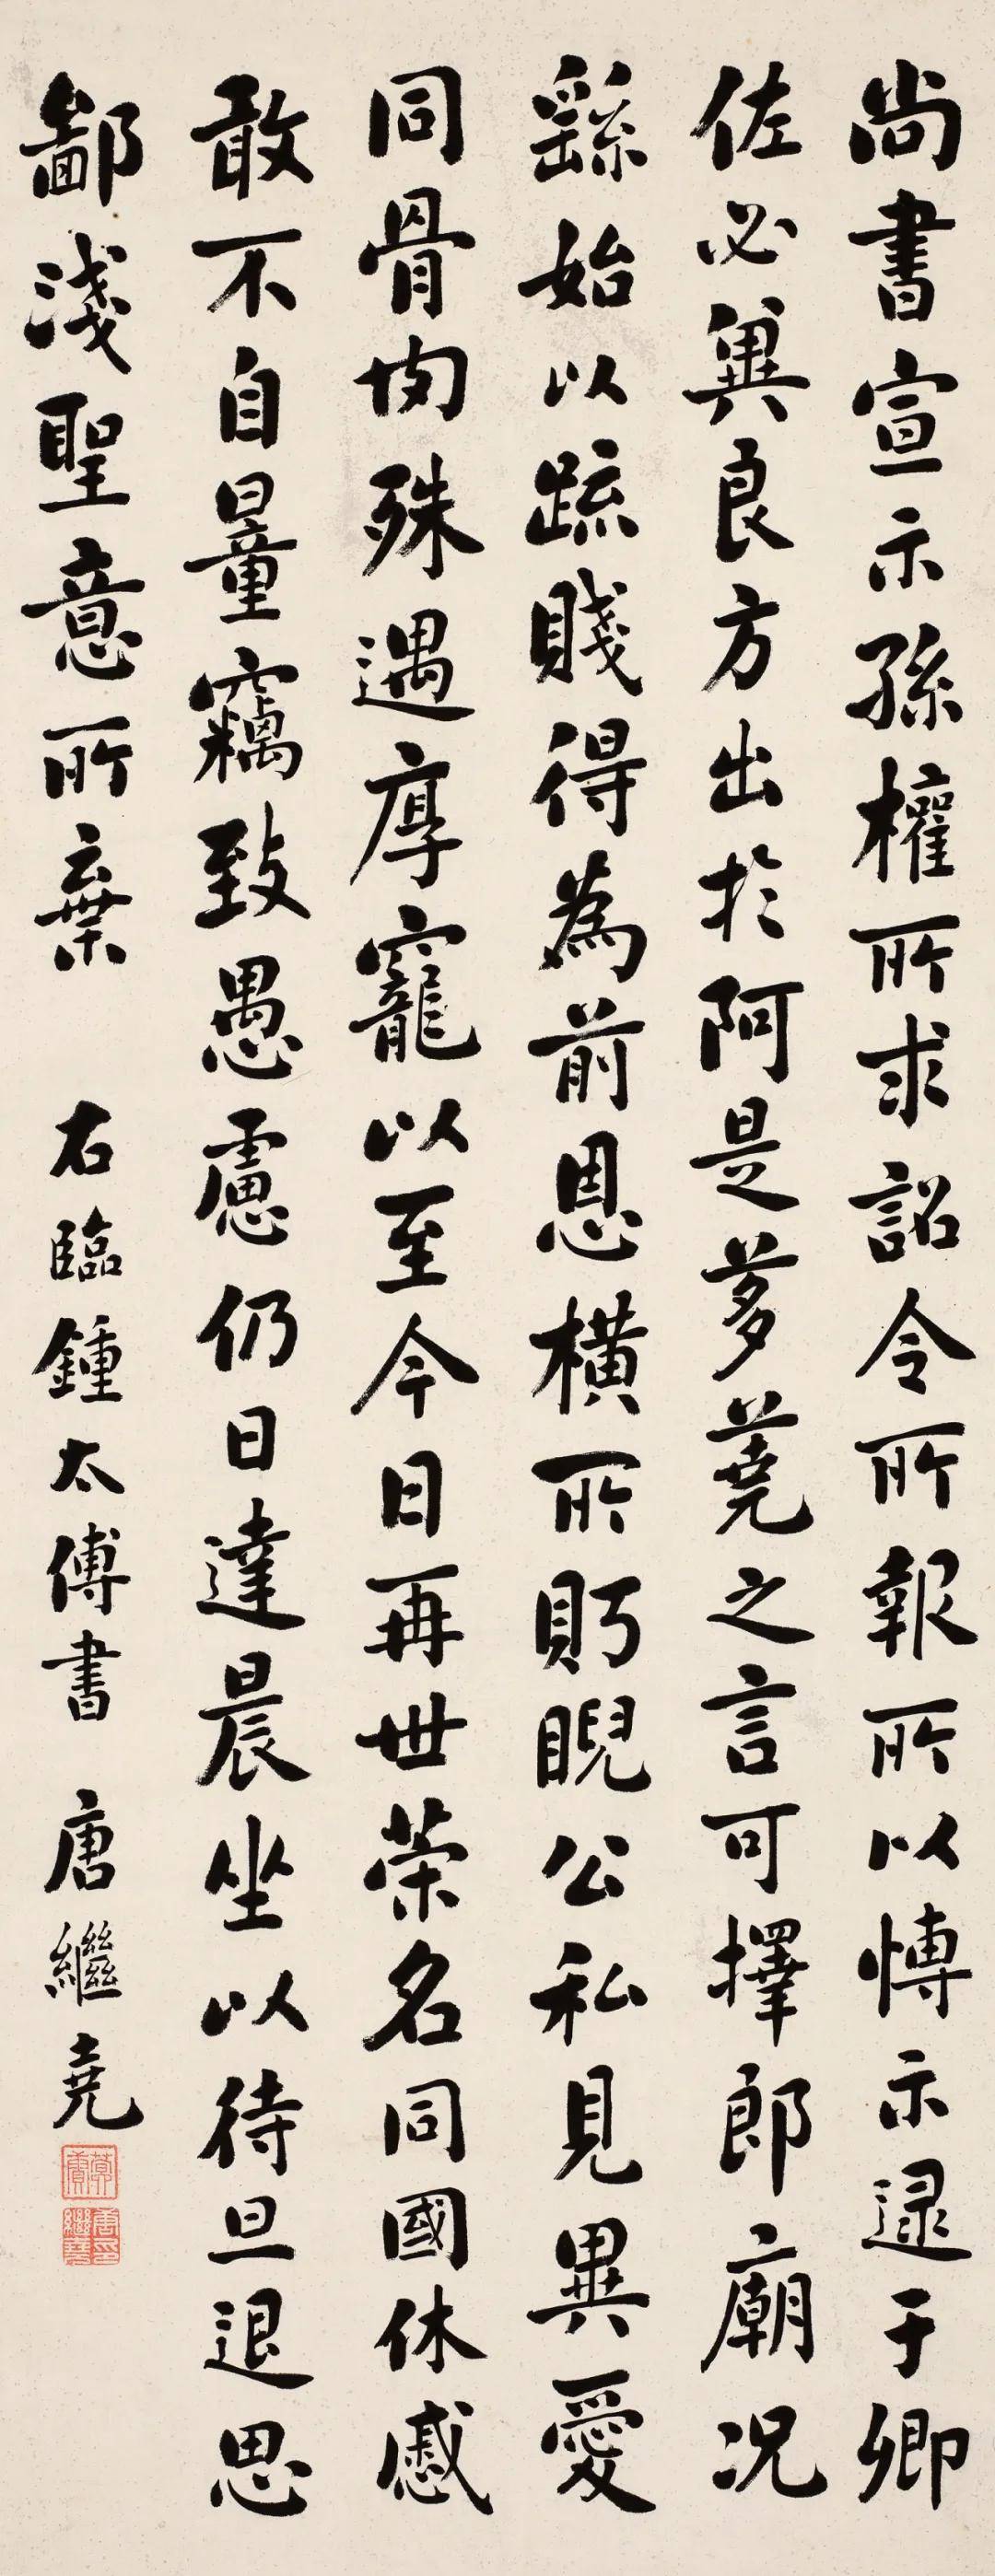 尚書宣示孫權所求詔令所報所以博示逮于卿
佐必兾良方出於阿是芻蕘之言可擇郎廟況
繇始以疏賤得為前恩橫所盱睨公私見異愛
同骨肉殊遇厚寵以至今日再世榮名同國休慼
敢不自量竊致愚慮仍日達晨坐以待旦退思
鄙淺聖意所棄 右臨鍾太傅書 唐繼堯
唐繼堯印